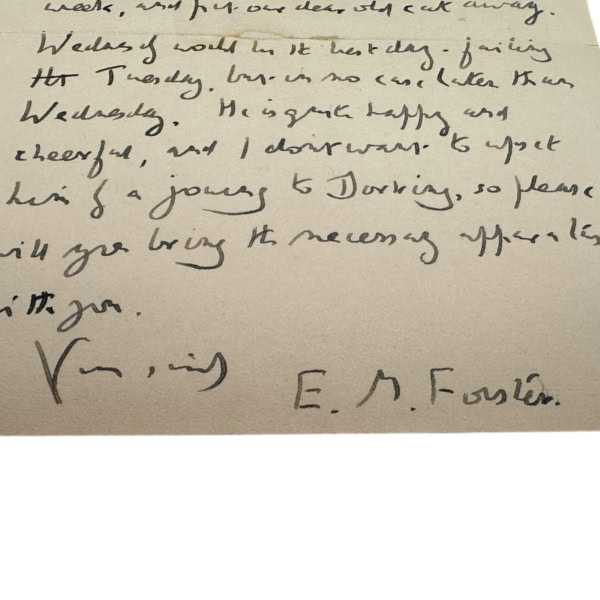 week, and put our dear old cat away.
Wednesday would be the best day - failing
tht Tuesday, but in no case later than
Wednesday. He is quite happy and
cheerful, and I don't want to upset
him by a journey to Dorking, so please
will you bring the necessary apparatus
with you.
Yours sincerely
E. M. Forster.